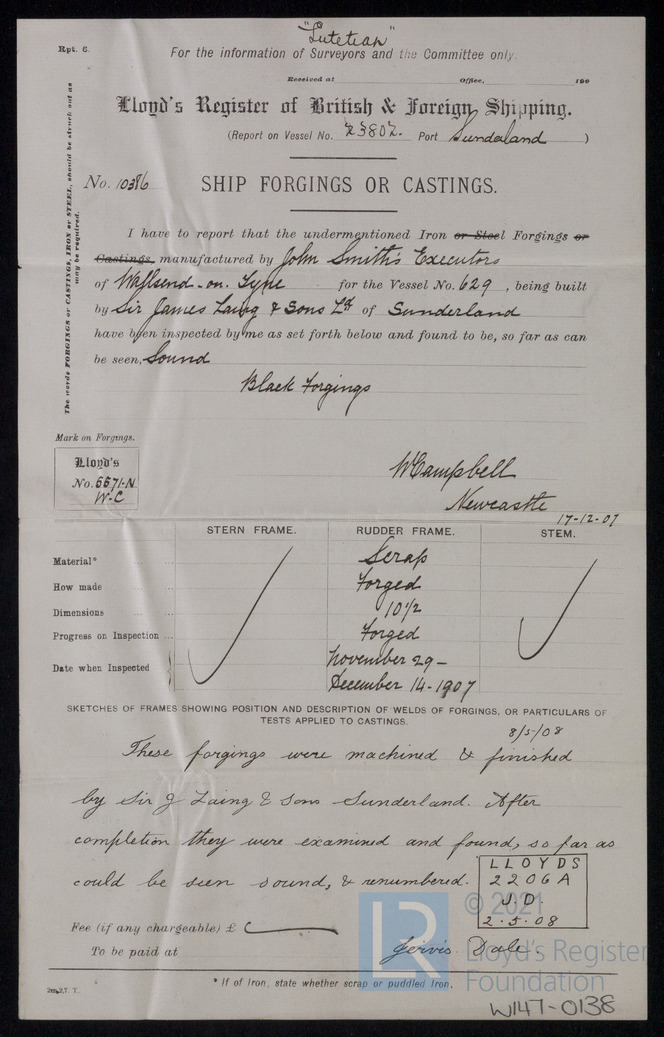 "Lutetian"
Rpt. 6.
For the information of Surveyors and the Committee only.
Received at Office, 190
Lloyd's Register of British & Foreign Shipping.
(Report on Vessel No. 23802. Port Sunderland )
No. 10386
SHIP FORGINGS OR CASTINGS.
The words FORGINGS or CASTINGS, IRON or STEEL, should be struck out as
may be required.
I have to report that the undermentioned Iron or Steel Forgings or
Castings, manufactured by John Smith's Executors
of Wallsend-on-Tyne for the Vessel No. 629 , being built
by Sir James Laing & Sons Ld of Sunderland
have been inspected by me as set forth below and found to be, so far as can
be seen, Sound
Black Forgings
Mark on Forgings.
Lloyd's
No. 6671-N
W-C
W Campbell
Newcastle
17-12-07
STERN FRAME. RUDDER FRAME. STEM.
Material* Scrap
How made Forged
Dimensions 10 1/2
Progress on Inspection Forged
Date when Inspected November 29-
December 14-1907
SKETCHES OF FRAMES SHOWING POSITION AND DESCRIPTION OF WELDS OF FORGINGS, OR PARTICULARS OF
TESTS APPLIED TO CASTINGS.
8/5/08
These forgings were machined & finished
by Sir J Laing & Sons Sunderland. After
completion they were examined and found, so far as
could be seen sound, & renumbered.
LLOYDS
2206A
J.D
2.5.08
Fee (if any chargeable) £
To be paid at
Jervis Dale.
* If of Iron, state whether scrap or puddled Iron.
LR
© 2021
Lloyd's Register
Foundation
W147-0138